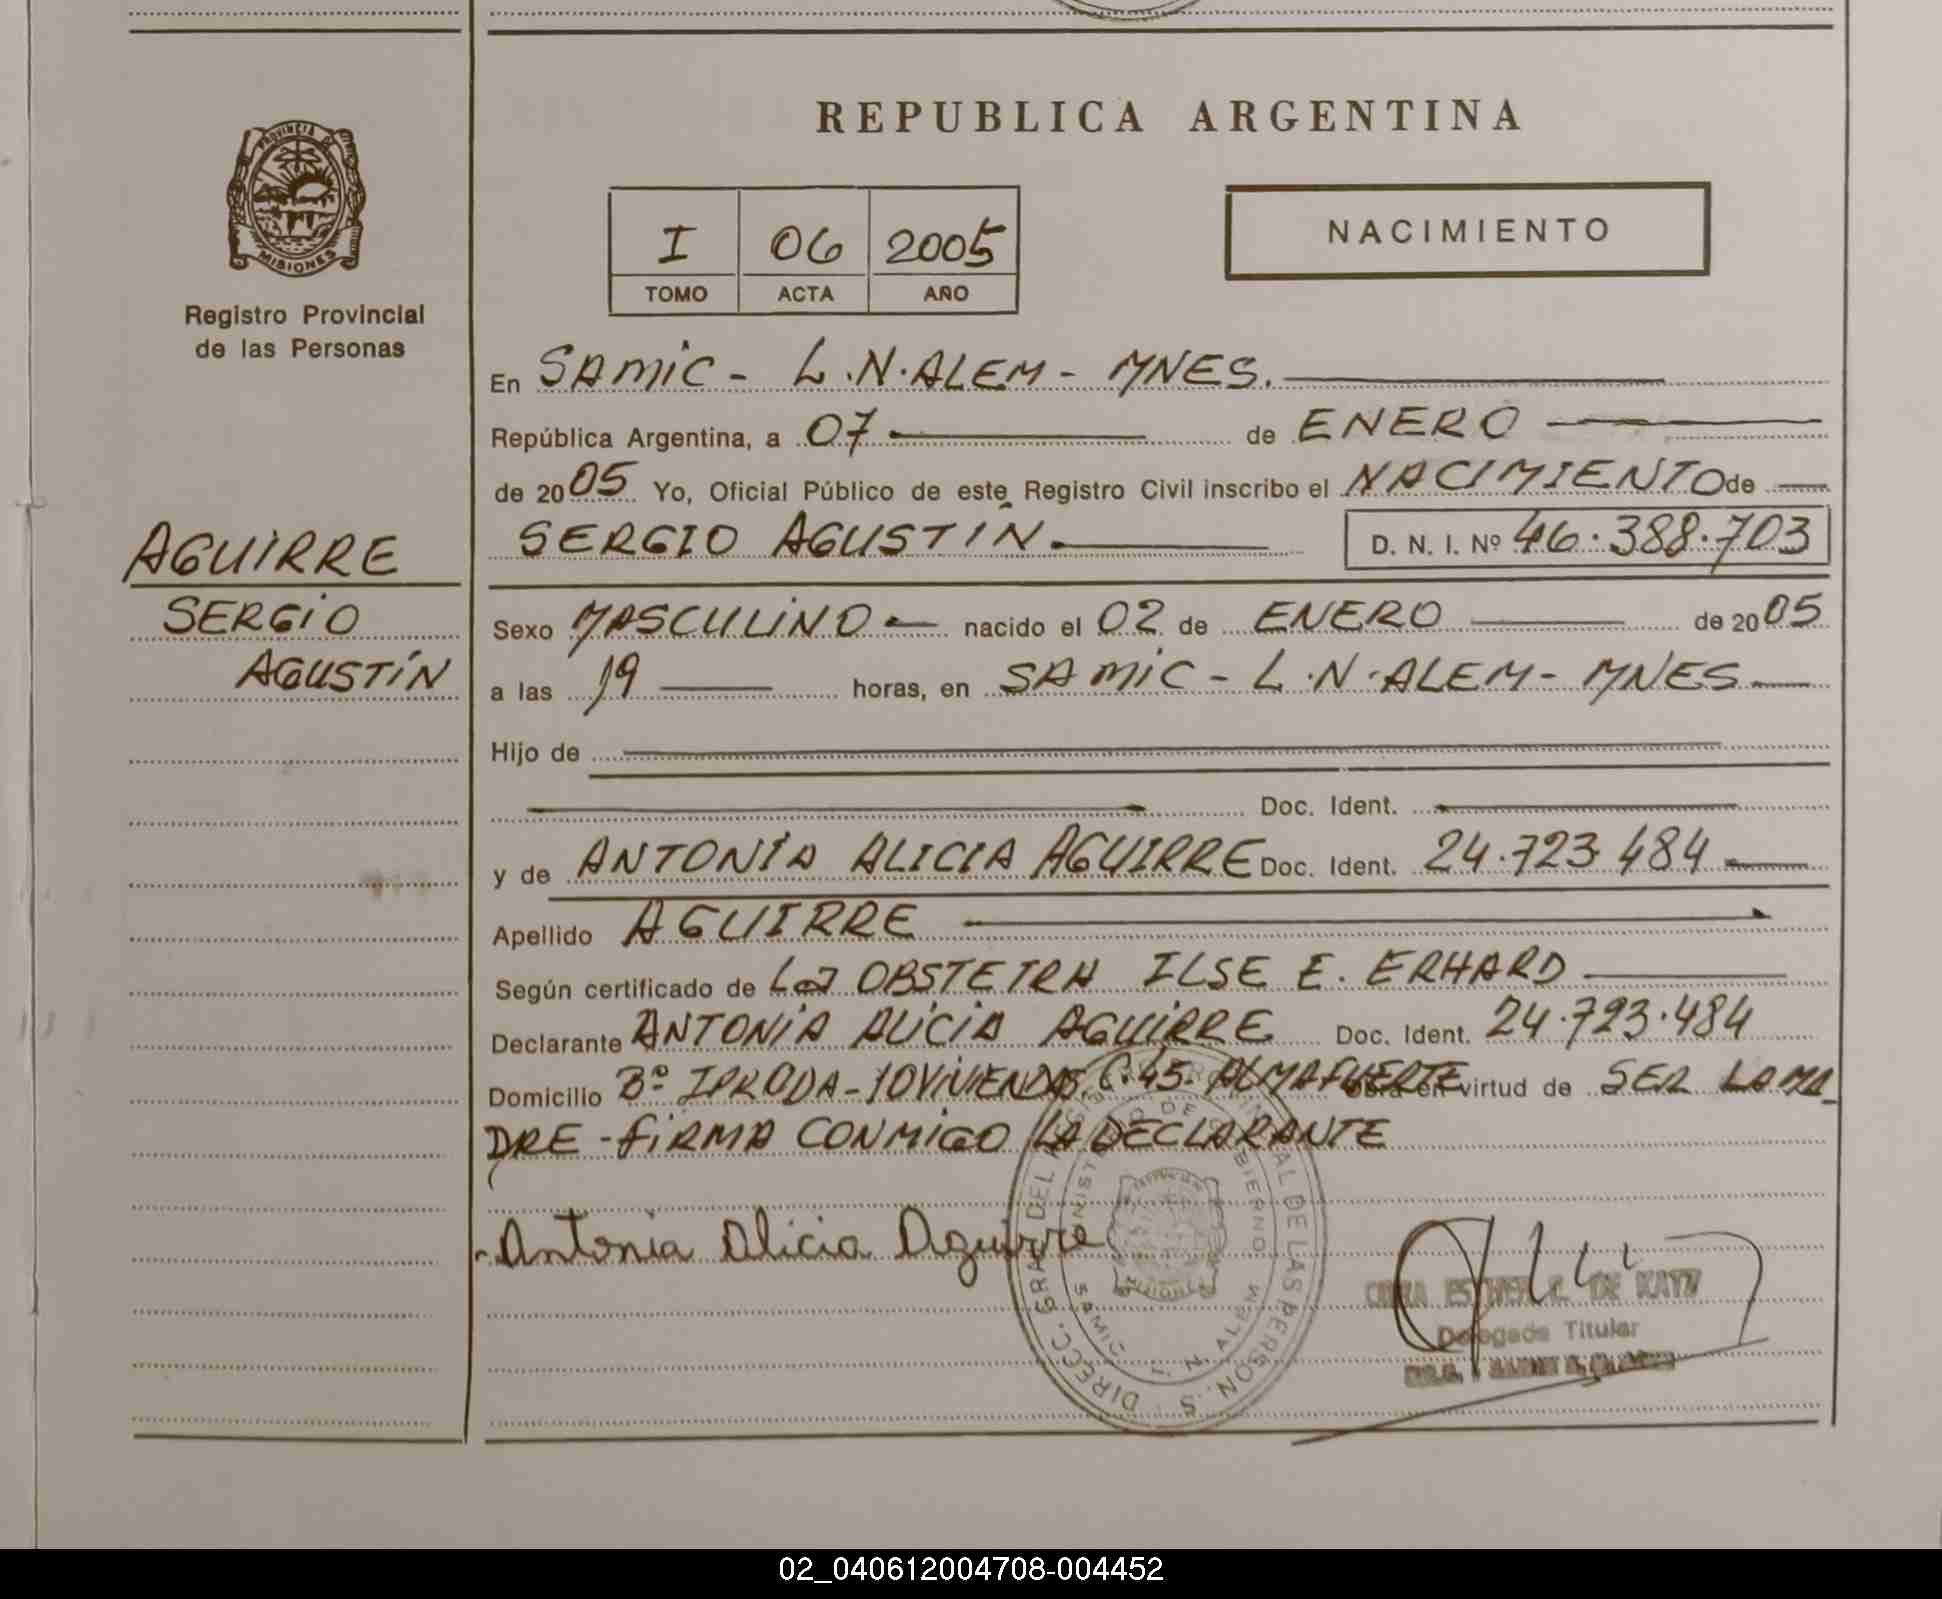 REPUBLICA ARGENTINA
PROVINCIA DE
MISIONES
Registro Provincial
de las Personas
I 06 2005
TOMO ACTA AÑO
NACIMIENTO
En SAMIC - L.N.ALEM - MNES.
República Argentina, a 07 de ENERO
de 2005 Yo, Oficial Público de este Registro Civil inscribo el NACIMIENTO de
SERGIO AGUSTÍN D. N. I. Nº 46.388.703
AGUIRRE
SERGIO
AGUSTÍN
Sexo MASCULINO nacido el 02 de ENERO de 2005
a las 19 horas, en SAMIC - L.N.ALEM - MNES
Hijo de
Doc. Ident.
y de ANTONIA ALICIA AGUIRRE Doc. Ident. 24.723.484
Apellido AGUIRRE
Según certificado de La OBSTETRA ILSE E. ERHARD
Declarante ANTONIA ALICIA AGUIRRE Doc. Ident. 24.723.484
Domicilio Bº IPRODA - 10 VIVIENDAS. C.45. ALMAFUERTE Obra en virtud de SER LA MA_
DRE - FIRMA CONMIGO LA DECLARANTE
Antonia Alicia Aguirre
DE KATZ
Delegada Titular
DIRECC. GRAL DEL REGISTRO PROVINCIAL DE LAS PERSONAS
MINISTERIO DE GOBIERNO
SAMIC L. N. ALEM
MISIONES
02_040612004708-004452